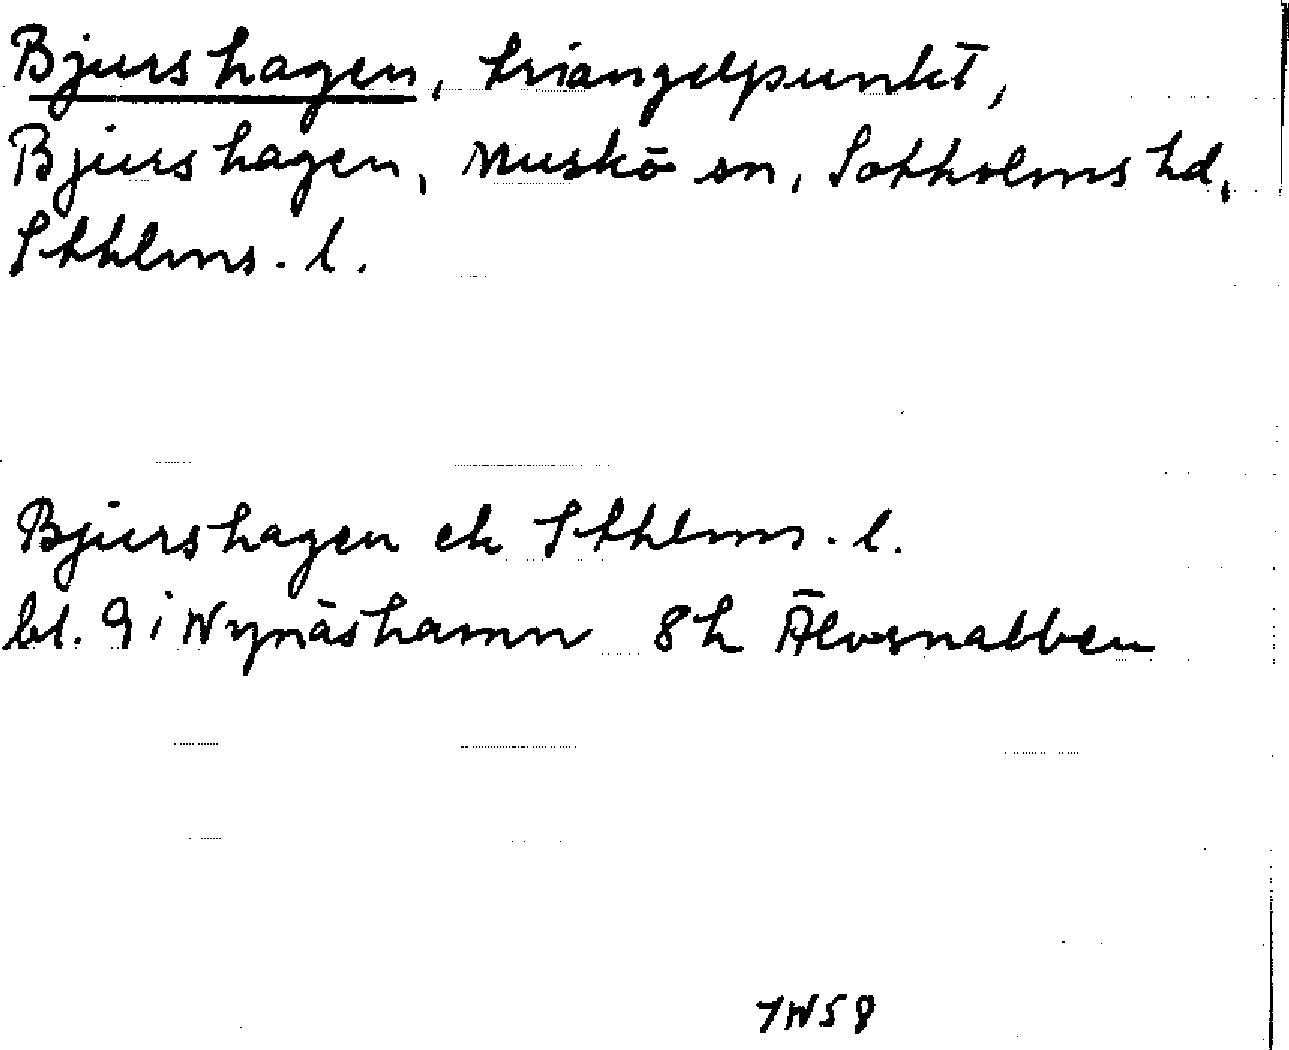 Bjurshagen, triangelpunkt,
Bjurshagen, Muskö sn, Sotholms hd,
Sthlms. l.
Bjurshagen ek Sthlms. l.
bl. 9 i Nynäshamn 8h Älvsnabben